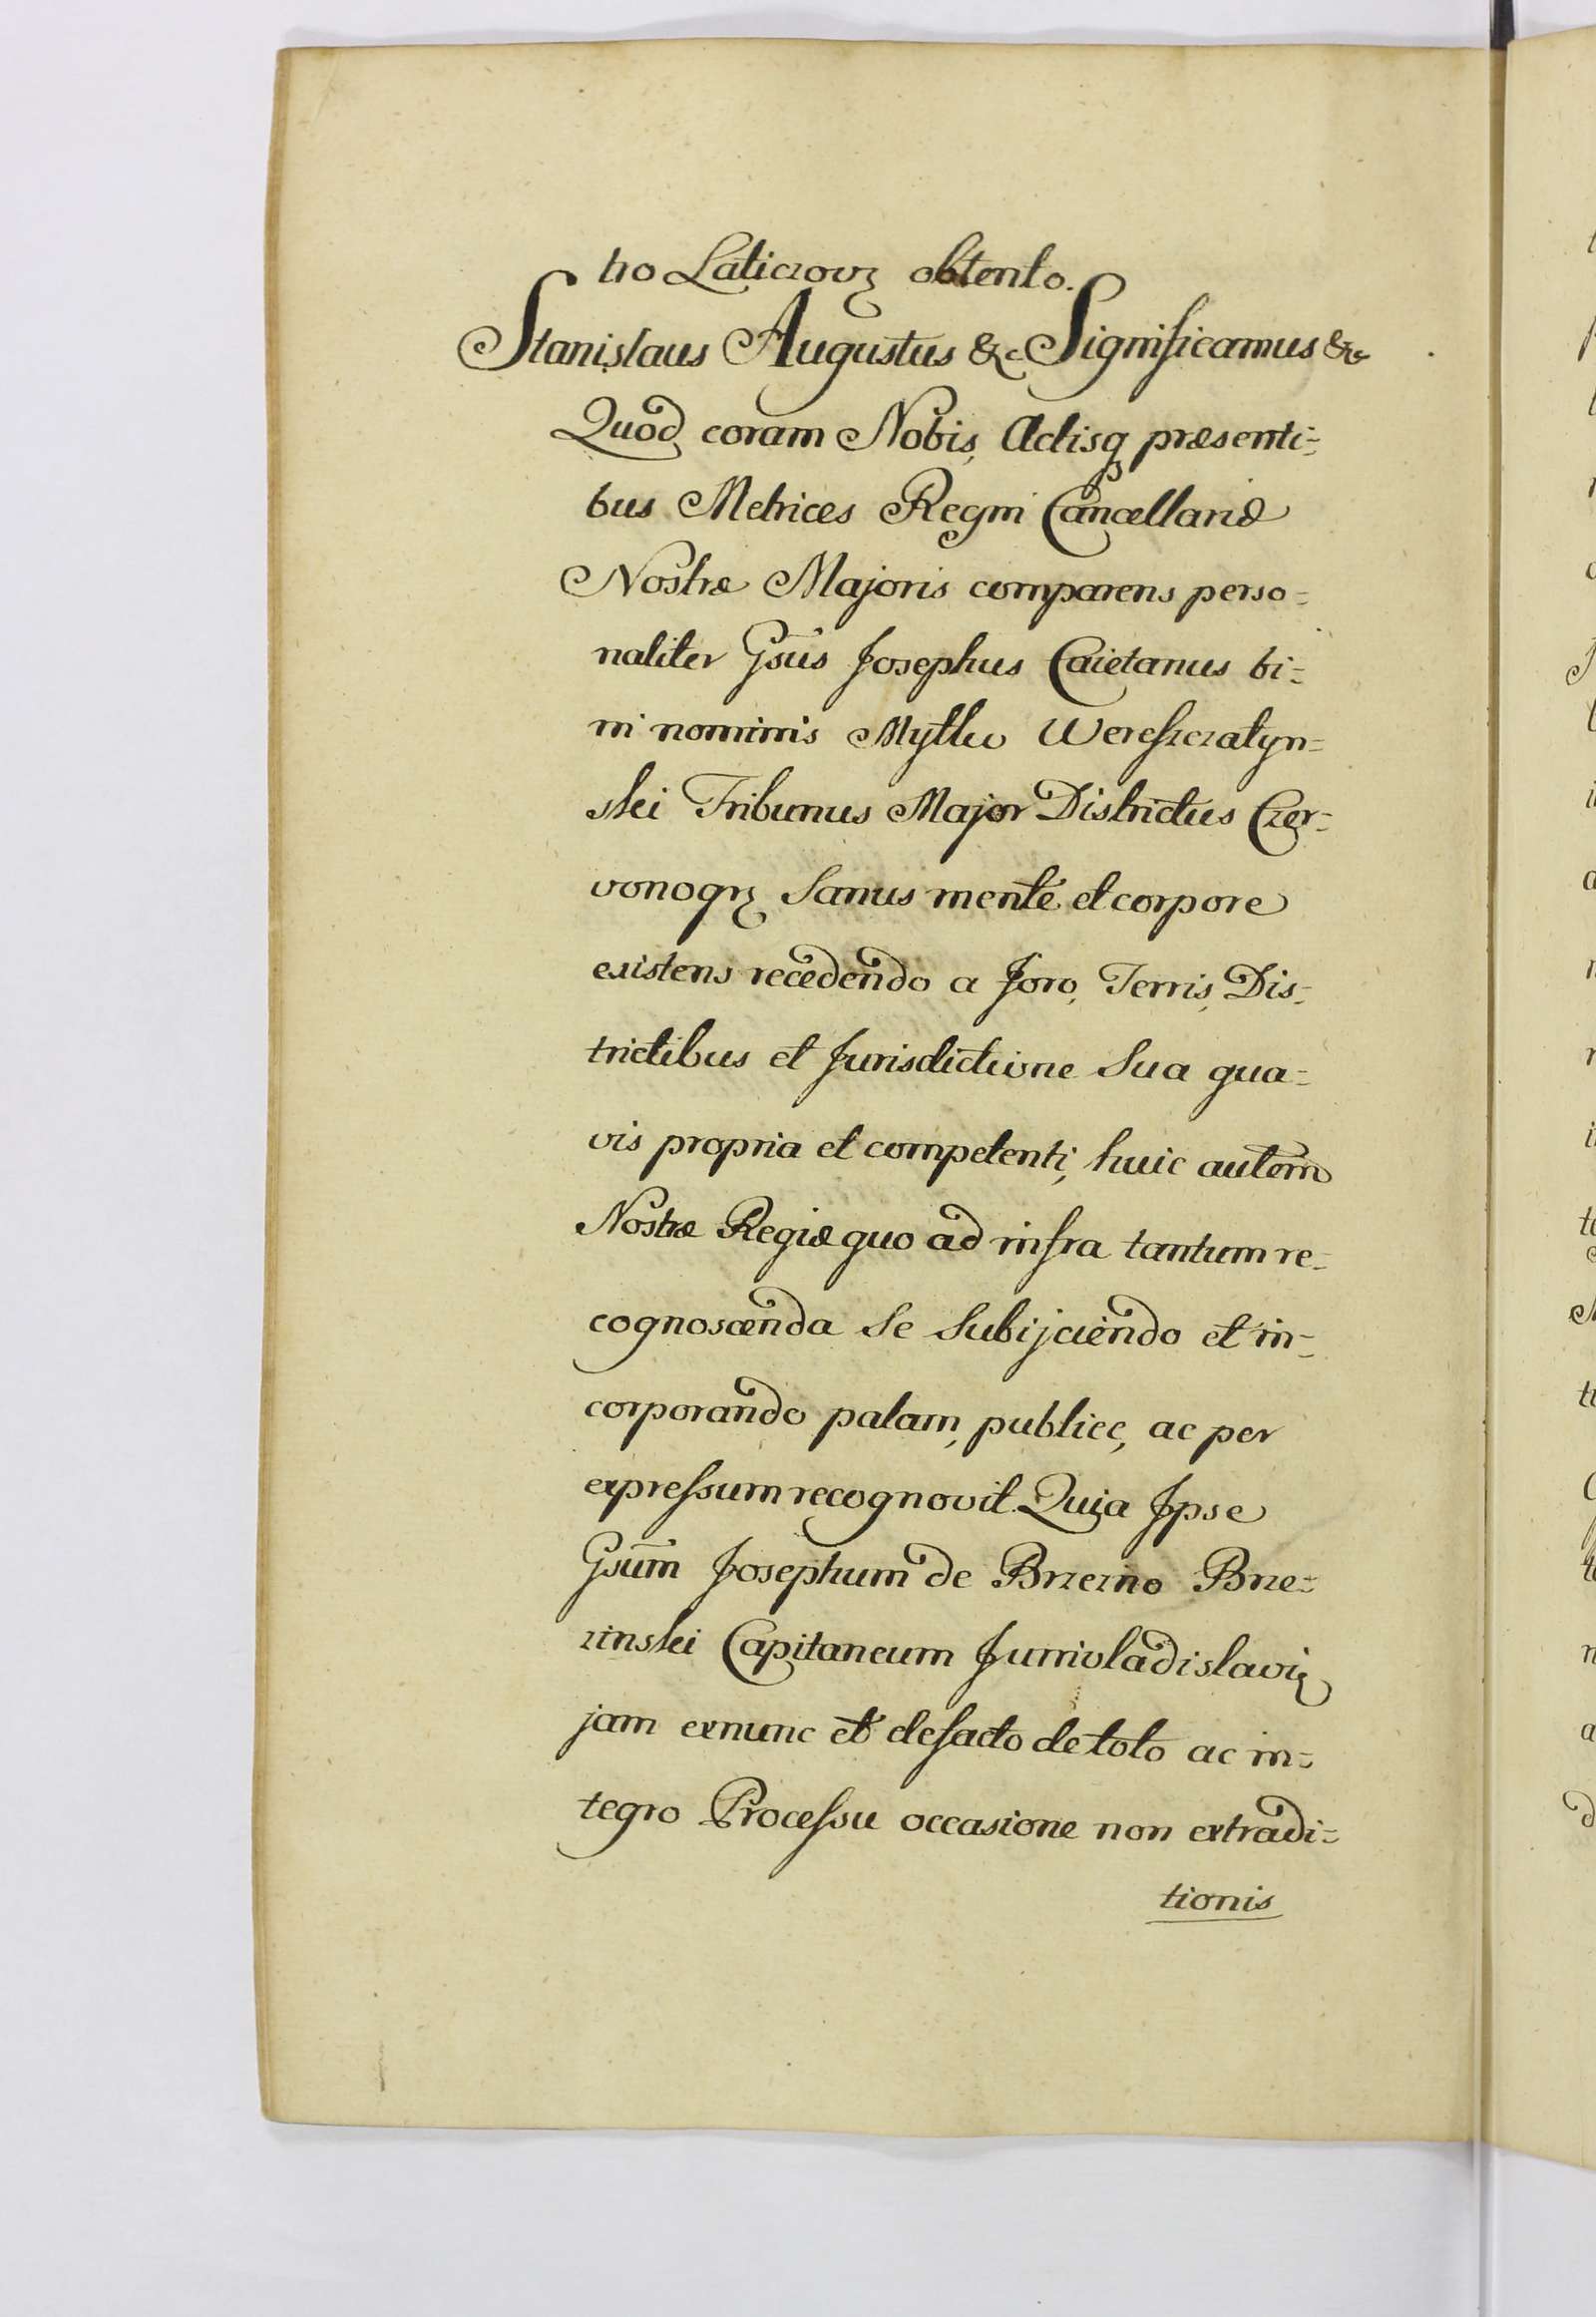 tro Laticzov obtento.
Stanislaus Augustus &c Significamus &c
Quod coram Nobis, Actisq præsenti=
bus Metrices Regni Cancellariæ
Nostræ Majoris comparens perso=
naliter Gsus Josephus Caietanus bi=
ni nominis Mytko Wereszczatyn=
ski Tribunus Major Districtus Czer=
vonogr Sanus mente et corpore
existens recedendo a foro, Terris, Dis=
trictibus et Jurisdictione Sua qua=
vis propria et competenti, huic autem
Nostræ Regiæ quo ad infra tantum re=
cognoscenda Se Subijciendo et in=
corporando palam, publice, ac per
expressum recognovit. Quia Ipse
Gsum Josephum de Brzezno Brze=
zinski Capitaneum Junivladislavi
jam exnunc et defacto de toto ac in=
tegro Processu occasione non extradi=
tionis